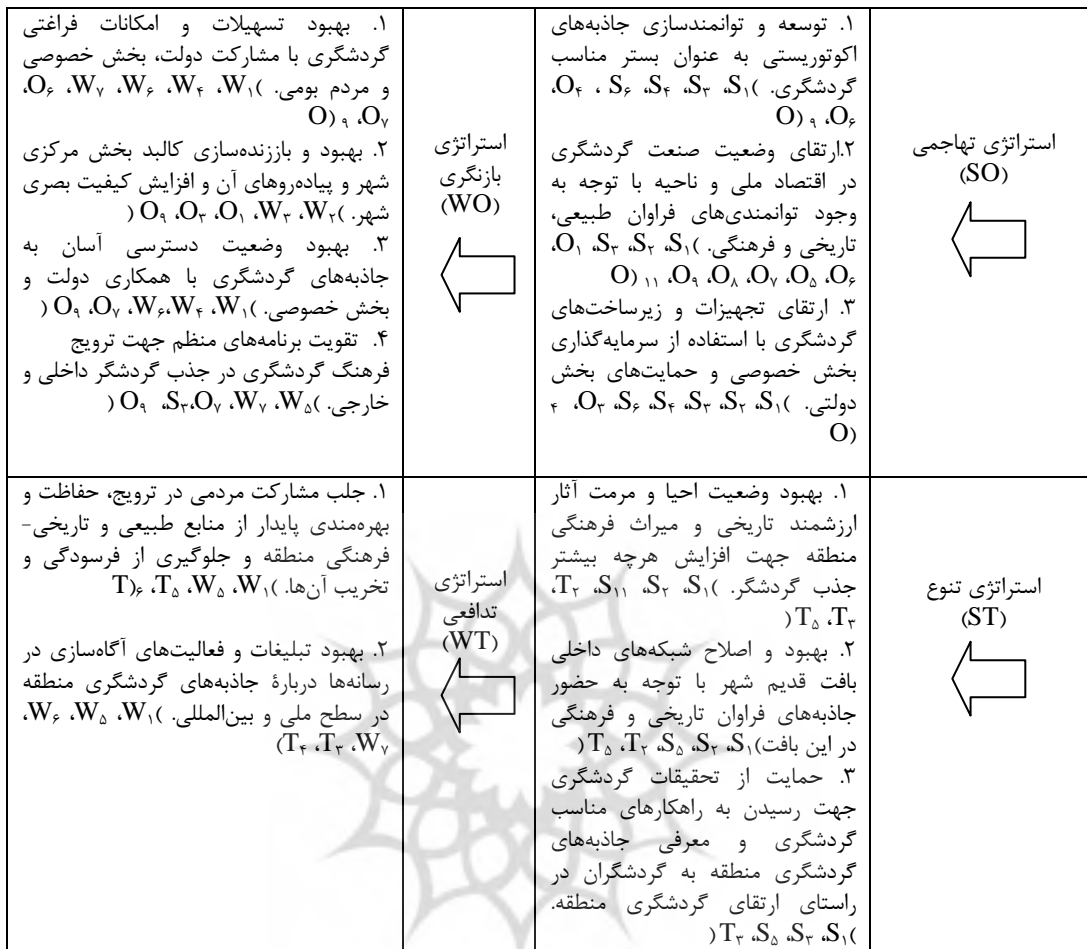 استراتژی تهاجمی
(SO)
۱. توسعه و توانمندسازی جاذبه‌های
اکوتوریستی به عنوان بستر مناسب
گردشگری. )S۱، S۳، S۴، S۶ ، O۴،
O۶، ۹ (O
۲.ارتقای وضعیت صنعت گردشگری
در اقتصاد ملی و ناحیه با توجه به
وجود توانمندی‌های فراوان طبیعی،
تاریخی و فرهنگی. )S۱، S۲، S۳، O۱،
O۶، O۵، O۷، O۸، O۹، ۱۱ (O
۳. ارتقای تجهیزات و زیرساخت‌های
گردشگری با استفاده از سرمایه‌گذاری
بخش خصوصی و حمایت‌های بخش
دولتی. )S۱، S۲، S۳، S۴، S۶، O۳، ۴
(O
استراتژی
بازنگری
(WO)
۱. بهبود تسهیلات و امکانات فراغتی
گردشگری با مشارکت دولت، بخش خصوصی
و مردم بومی. )W۱، W۴، W۶، W۷، O۶،
O۷، ۹ (O
۲. بهبود و باززنده‌سازی کالبد بخش مرکزی
شهر و پیاده‌روهای آن و افزایش کیفیت بصری
شهر. )W۲، W۳، O۱، O۳، O۹ (
۳. بهبود وضعیت دسترسی آسان به
جاذبه‌های گردشگری با همکاری دولت و
بخش خصوصی. )W۱، W۴،W۶، O۷، O۹ (
۴. تقویت برنامه‌های منظم جهت ترویج
فرهنگ گردشگری در جذب گردشگر داخلی و
خارجی. )W۵، W۷، S۳،O۷، O۹ (
استراتژی تنوع
(ST)
۱. بهبود وضعیت احیا و مرمت آثار
ارزشمند تاریخی و میراث فرهنگی
منطقه جهت افزایش هرچه بیشتر
جذب گردشگر. )S۱، S۲، S۱۱، T۲،
T۳، T۵ (
۲. بهبود و اصلاح شبکه‌های داخلی
بافت قدیم شهر با توجه به حضور
جاذبه‌های فراوان تاریخی و فرهنگی
در این بافت)S۱، S۲، S۵، T۲، T۵ (
۳. حمایت از تحقیقات گردشگری
جهت رسیدن به راهکارهای مناسب
گردشگری و معرفی جاذبه‌های
گردشگری منطقه به گردشگران در
راستای ارتقای گردشگری منطقه.
)S۱، S۳، S۵، T۳ (
استراتژی
تدافعی
(WT)
۱. جلب مشارکت مردمی در ترویج، حفاظت و
بهره‌مندی پایدار از منابع طبیعی و تاریخی-
فرهنگی منطقه و جلوگیری از فرسودگی و
تخریب آن‌ها. )W۱، W۵، T۵، ۶(T
۲. بهبود تبلیغات و فعالیت‌های آگاه‌سازی در
رسانه‌ها دربارۀ جاذبه‌های گردشگری منطقه
در سطح ملی و بین‌المللی. )W۱، W۵، W۶،
W۷، T۳، T۴)